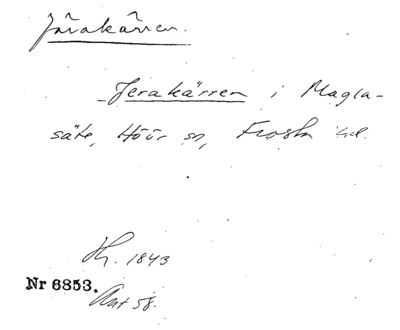 Jörakärren.
Jerakärren i Magla-
säte, Höör sn, Frosta hd.
Hy. 1843
Nr 6853.
Ant 58.